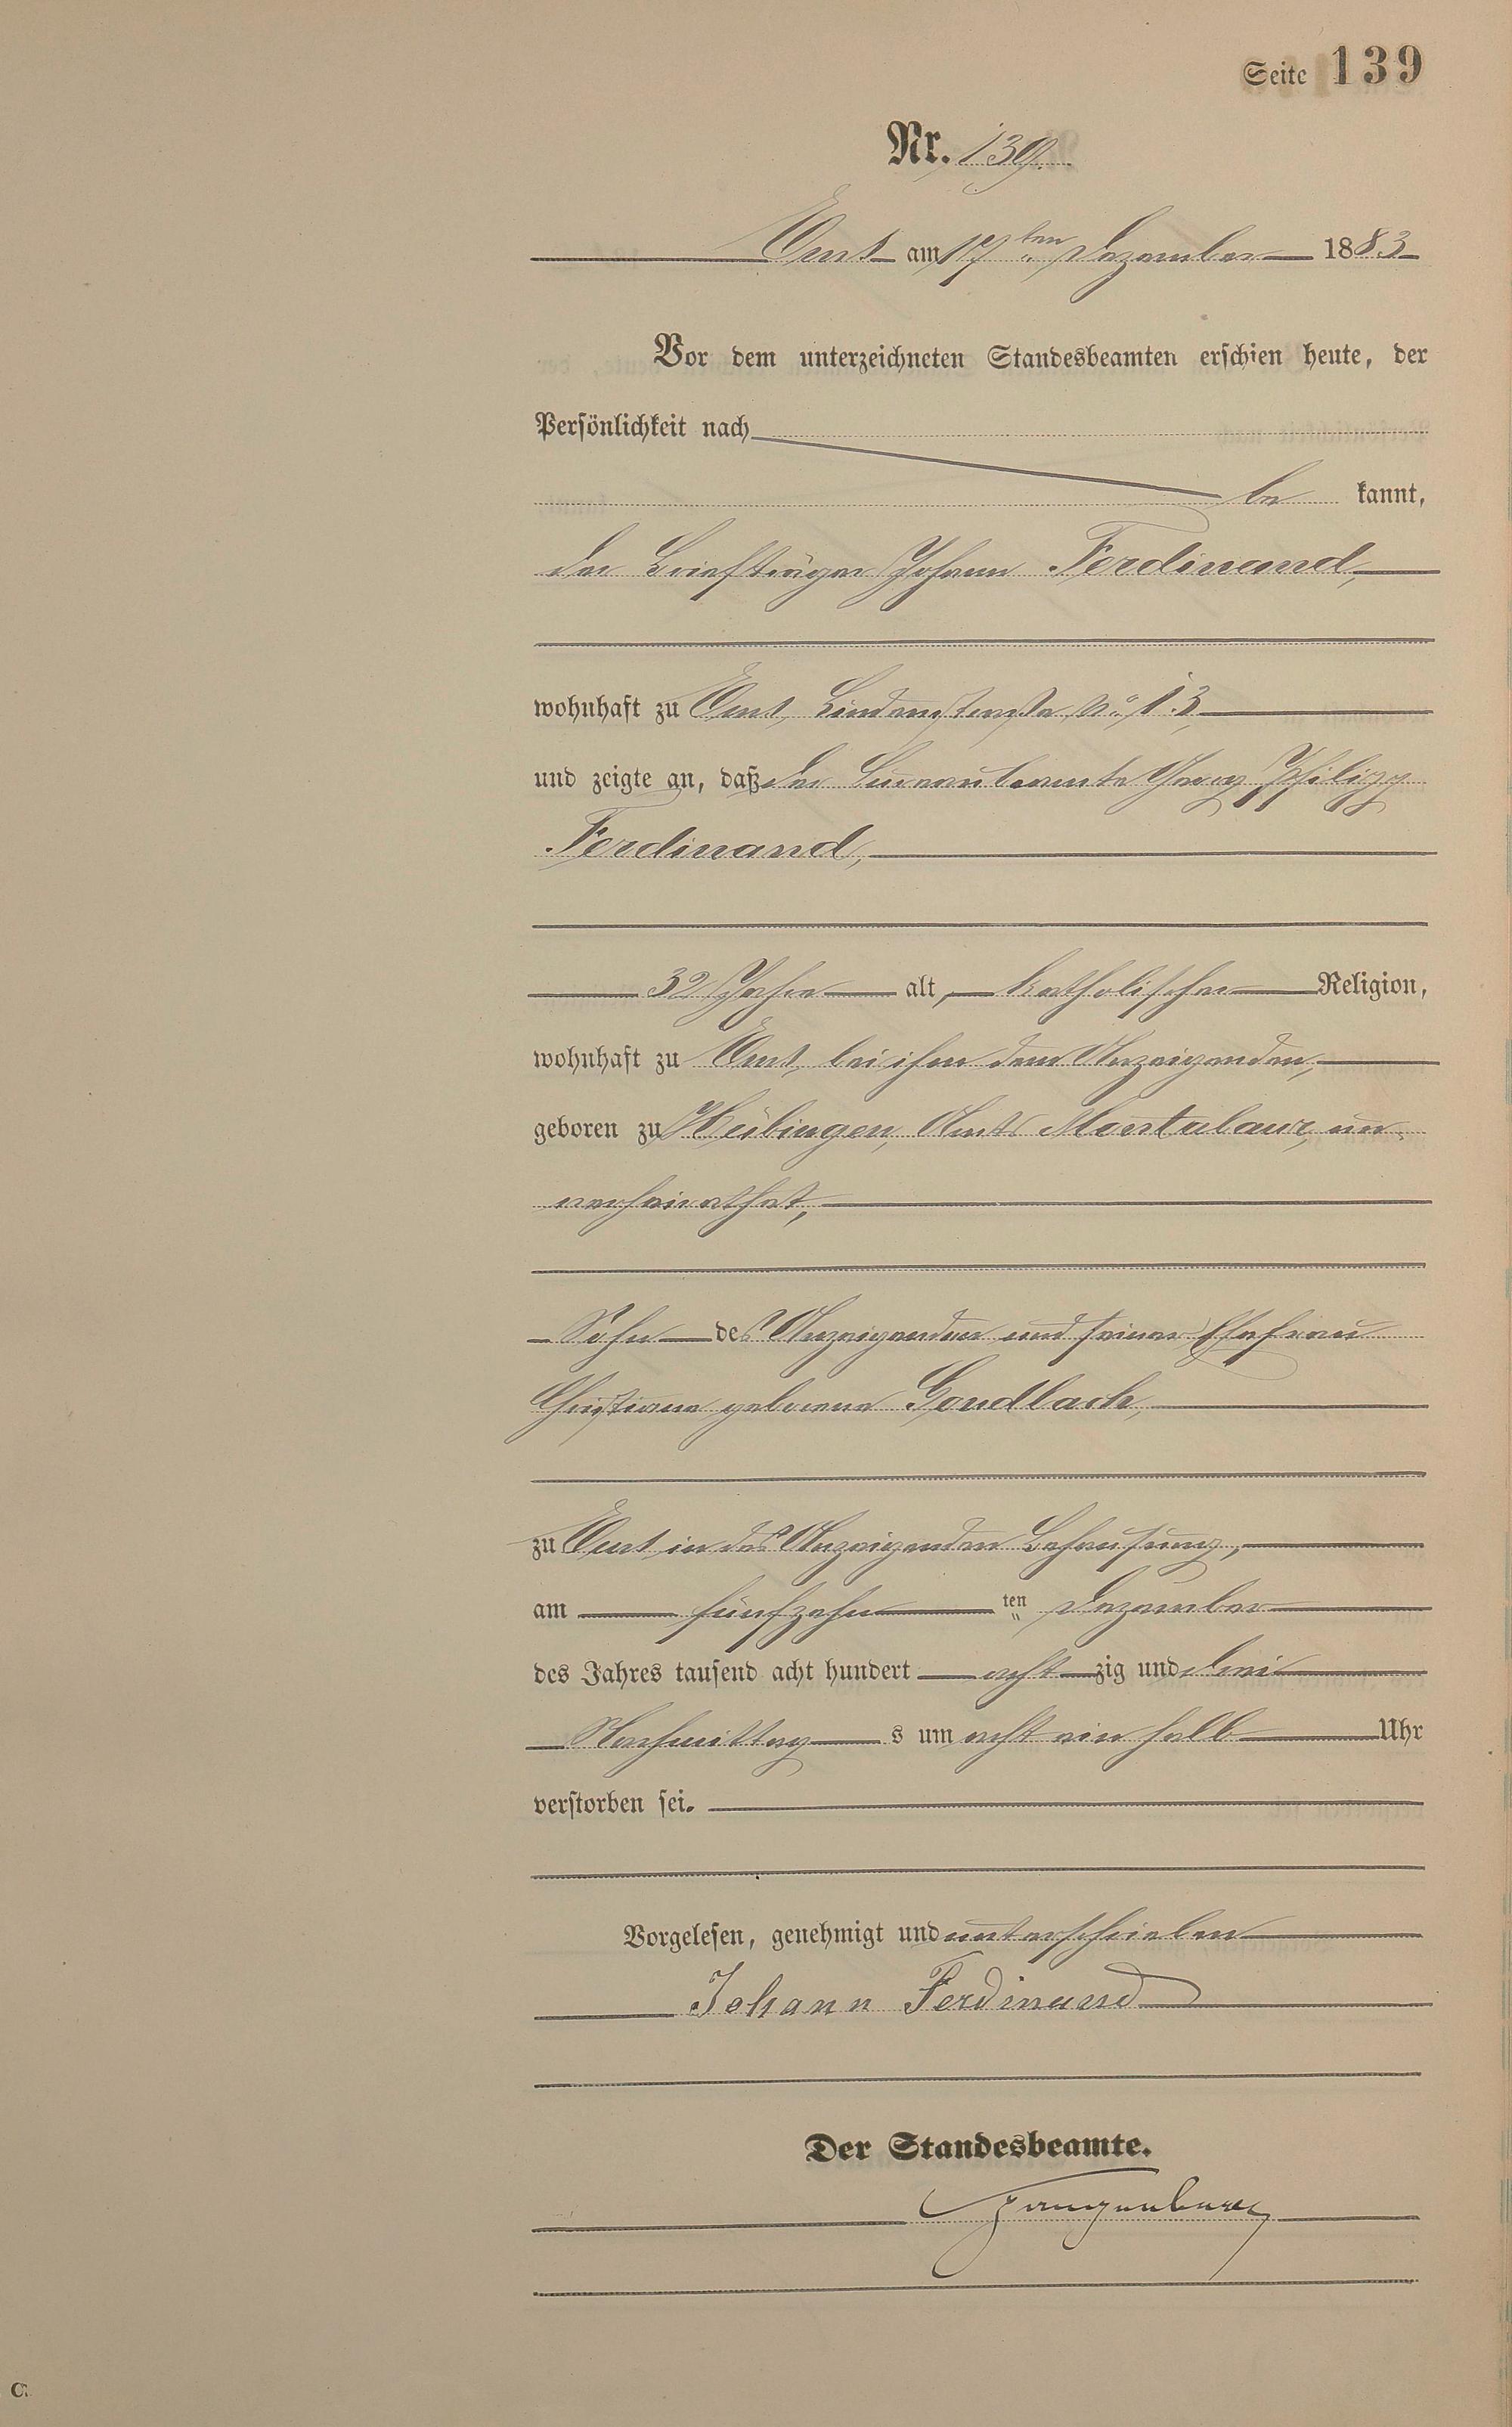 Seite 139
Nr. 139.
Ems am 17ten Dezember 1883
Vor dem unterzeichneten Standesbeamten erschien heute, der
Persönlichkeit nach
be kannt,
der Briefträger Johann Ferdinand,
wohnhaft zu Ems, Lindenstraße No 13,
und zeigte an, daß der Bureaubeamte Georg Philipp
Ferdinand,
32 Jahre alt, katholischer Religion,
wohnhaft zu Ems, bei ihm dem Anzeigenden,
geboren zu Hübingen, Amts Montabaur, un-
verheirathet,
Sohn des Anzeigenden und seiner Ehefrau
Christiane geborene Gondlach,
zu Ems in des Anzeigenden Behausung,
am fünfzehn ten Dezember
des Jahres tausend acht hundert acht zig und drei
Nachmittag s um acht ein halb Uhr
verstorben sei.
Vorgelesen, genehmigt und unterschrieben
Johann Ferdinand
Der Standesbeamte.
C.